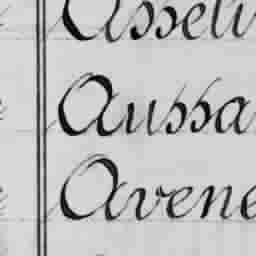 Asseli
Aussa
Avene